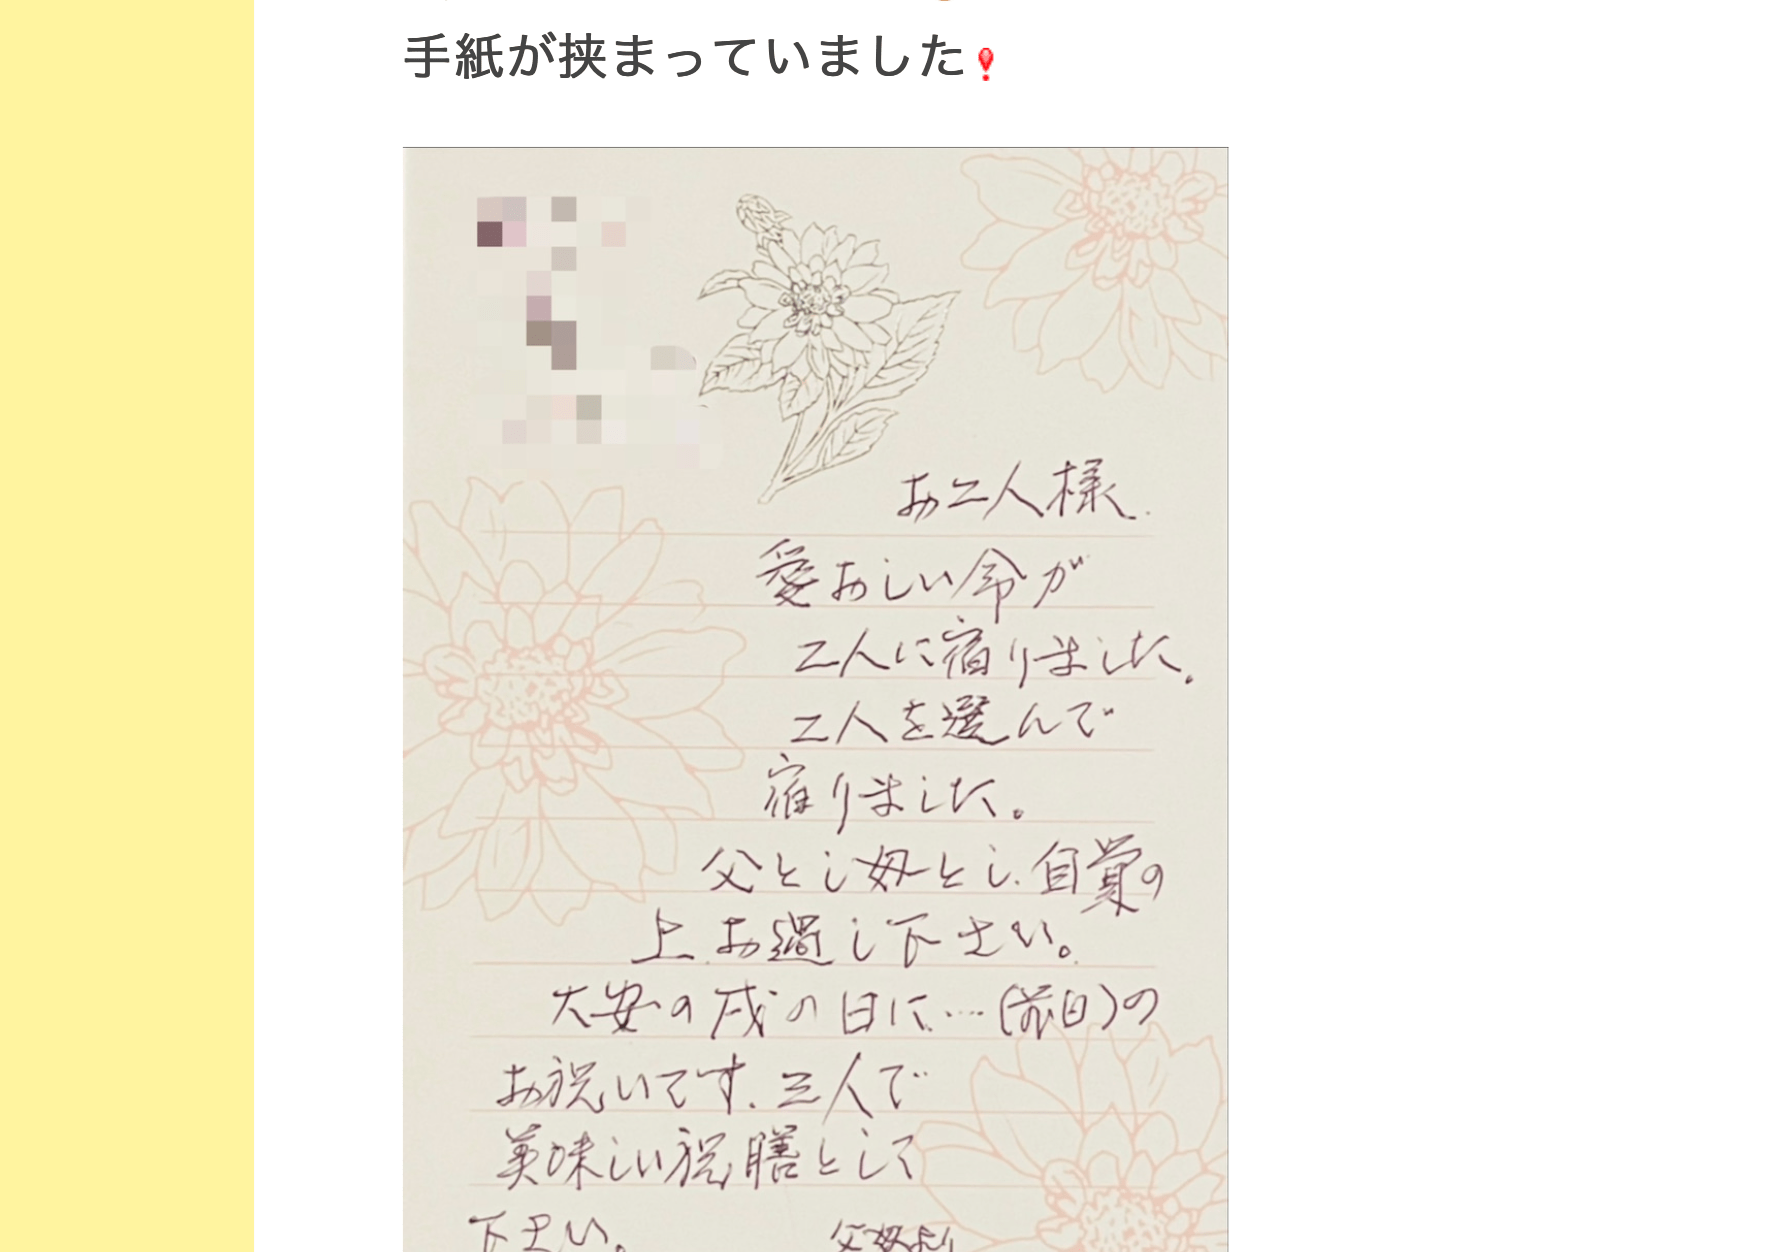 手紙が挟まっていました❗
お二人様
愛おしい命が
二人に宿りました。
二人を選んで
宿りました。
父とし母とし自覚の
上お過し下さい。
大安の戌の日に…(前日)の
お祝いです.三人で
美味しい祝膳として
下さい。 父母より